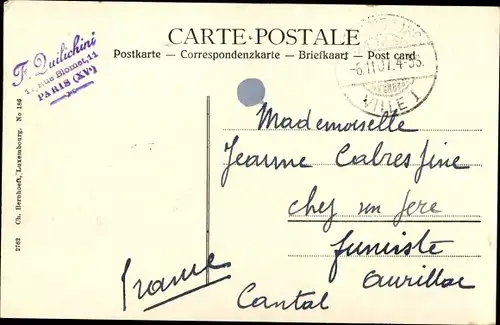 CARTE-POSTALE
Postkarte — Correspondenzkarte — Briefkaart — Post card
F. Quilichini
11, rue Blomet, 11
PARIS (XVe)
6.11.07. 4-5S.
VILLE 1
Mademoiselle
Jeanne Cabres fine
chez son père
fumiste
Aurillac
Cantal
france
2762 Ch. Bernhoeft, Luxembourg. No 186